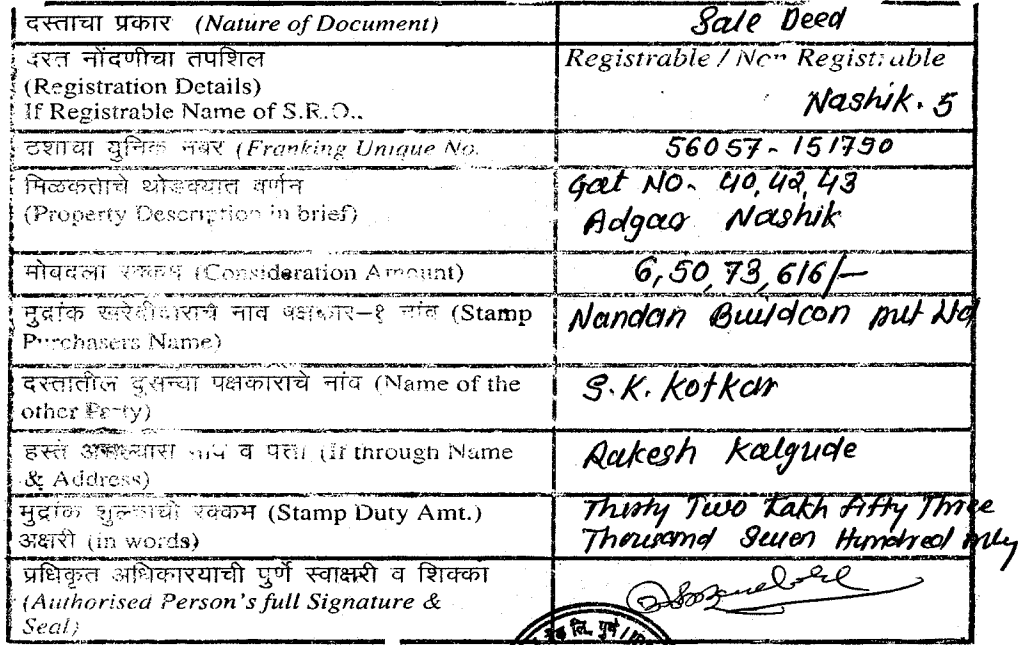 दस्ताचा प्रकार (Nature of Document)
Sale Deed
दस्त नोंदणीचा तपशिल
(Registration Details)
If Registrable Name of S.R.O.,
Registrable / Non Registrable
Nashik. 5
युनिक नंबर (Franking Unique No.
56057-151790
मिळकतीचे थोडक्यात वर्णन
(Property Description in brief)
Gat NO. 40, 42, 43
Adgao Nashik
मोबदला रक्कम (Consideration Amount)
6,50,73,616/-
मुद्रांक खरेदीदाराचे नाव पक्षकार-१ नांव (Stamp
Purchasers Name)
Nandan Buildcon pvt Ltd
दस्तातील दुसऱ्या पक्षकाराचे नांव (Name of the
other Party)
S.K. Kotkar
हस्ते असल्यास नाव व पत्ता (If through Name
& Address)
Rakesh Kalgude
मुद्रांक शुल्काची रक्कम (Stamp Duty Amt.)
अक्षरी (in words)
Thirty Two Lakh Fifty Three
Thousand Seven Hundred only
प्रधिकृत अधिकारयाची पुर्ण स्वाक्षरी व शिक्का
(Authorised Person's full Signature &
Seal)
लि. पुणे